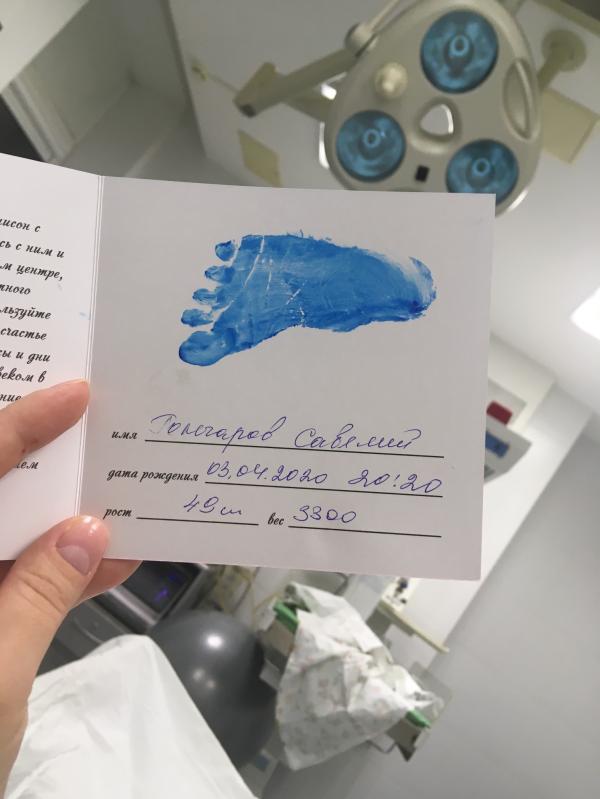 исон с
сь с ним и
м центре,
тного
льзуйте
счастье
сы и дни
веком в
ние
ем
имя Гончаров Савелий
дата рождения 03.04.2020 20:20
рост 49см вес 3300